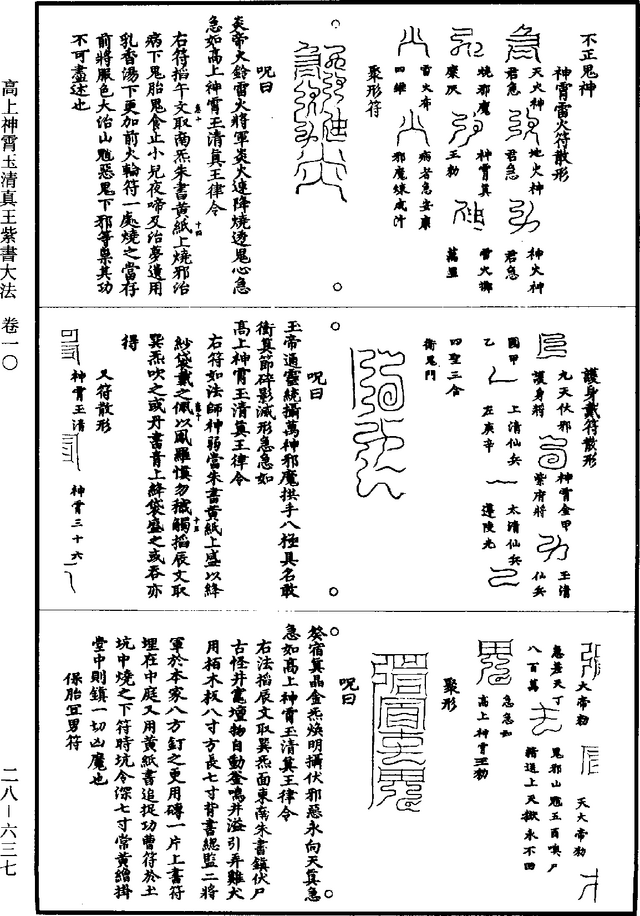 高上神霄玉清真王紫書大法 卷一〇
二八—六三七
不正鬼神
神霄雷火符散形
天火神
君急
地火神
君急
神火神
君急
燒邪魔
神霄真
雷火撫
麋灰
王勅
萬里
雷火布
病者急安康
四維
邪魔煉成汁
聚形符
呪曰
炎帝火鈴雷火將軍炎火速降燒透鬼心急
急如高上神霄玉清真王律令
右符搯午文取南炁朱書黃紙上燒邪治
病下鬼胎鬼食止小兒夜啼及治夢遺用
乳香湯下更加前火輪符一處燒之當存
前將服色大治山魈惡鬼下邪等稟其功
不可盡述也
護身戴符散形
九天伏邪
神霄金甲
玉清
護身將
紫府將
仙兵
國甲
上清仙兵
太清仙兵
乙
左庚辛
四聖三合
衛鬼門
呪曰
玉帝通靈統攝萬神邪魔拱手八極具名敢
衝箕節碎影滅形急急如
高上神霄玉清真王律令
右符如法師神弱當朱書黃紙上盛以絳
紗袋戴之佩以風羅慎勿穢觸搯辰文取
巽炁吹之或丹書青上絳袋盛之或吞亦
得
又符散形
神霄玉清
神霄三十六
大帝勑
天大帝勑
急差天丁
鬼邪山魈五百嗔尸
八百萬
籍送上天獄永不回
急急如
高上神霄王勑
聚形
呪曰
癸宿箕晶金炁煥明攝伏邪惡永向天箕急
急如高上神霄玉清真王律令
右法搯辰文取巽炁面東南朱書鎮伏尸
古怪井竈壇物自動釜鳴井溢引弄雞犬
用栢木板八寸方長七寸背書總監二將
軍於本家八方釘之更用磚一片上書符
埋在中庭又用黃紙書追捉功曹符於土
坑中燒之下符時坑令深七寸當黃繒掛
堂中則鎮一切凶魔也
保胎宜男符